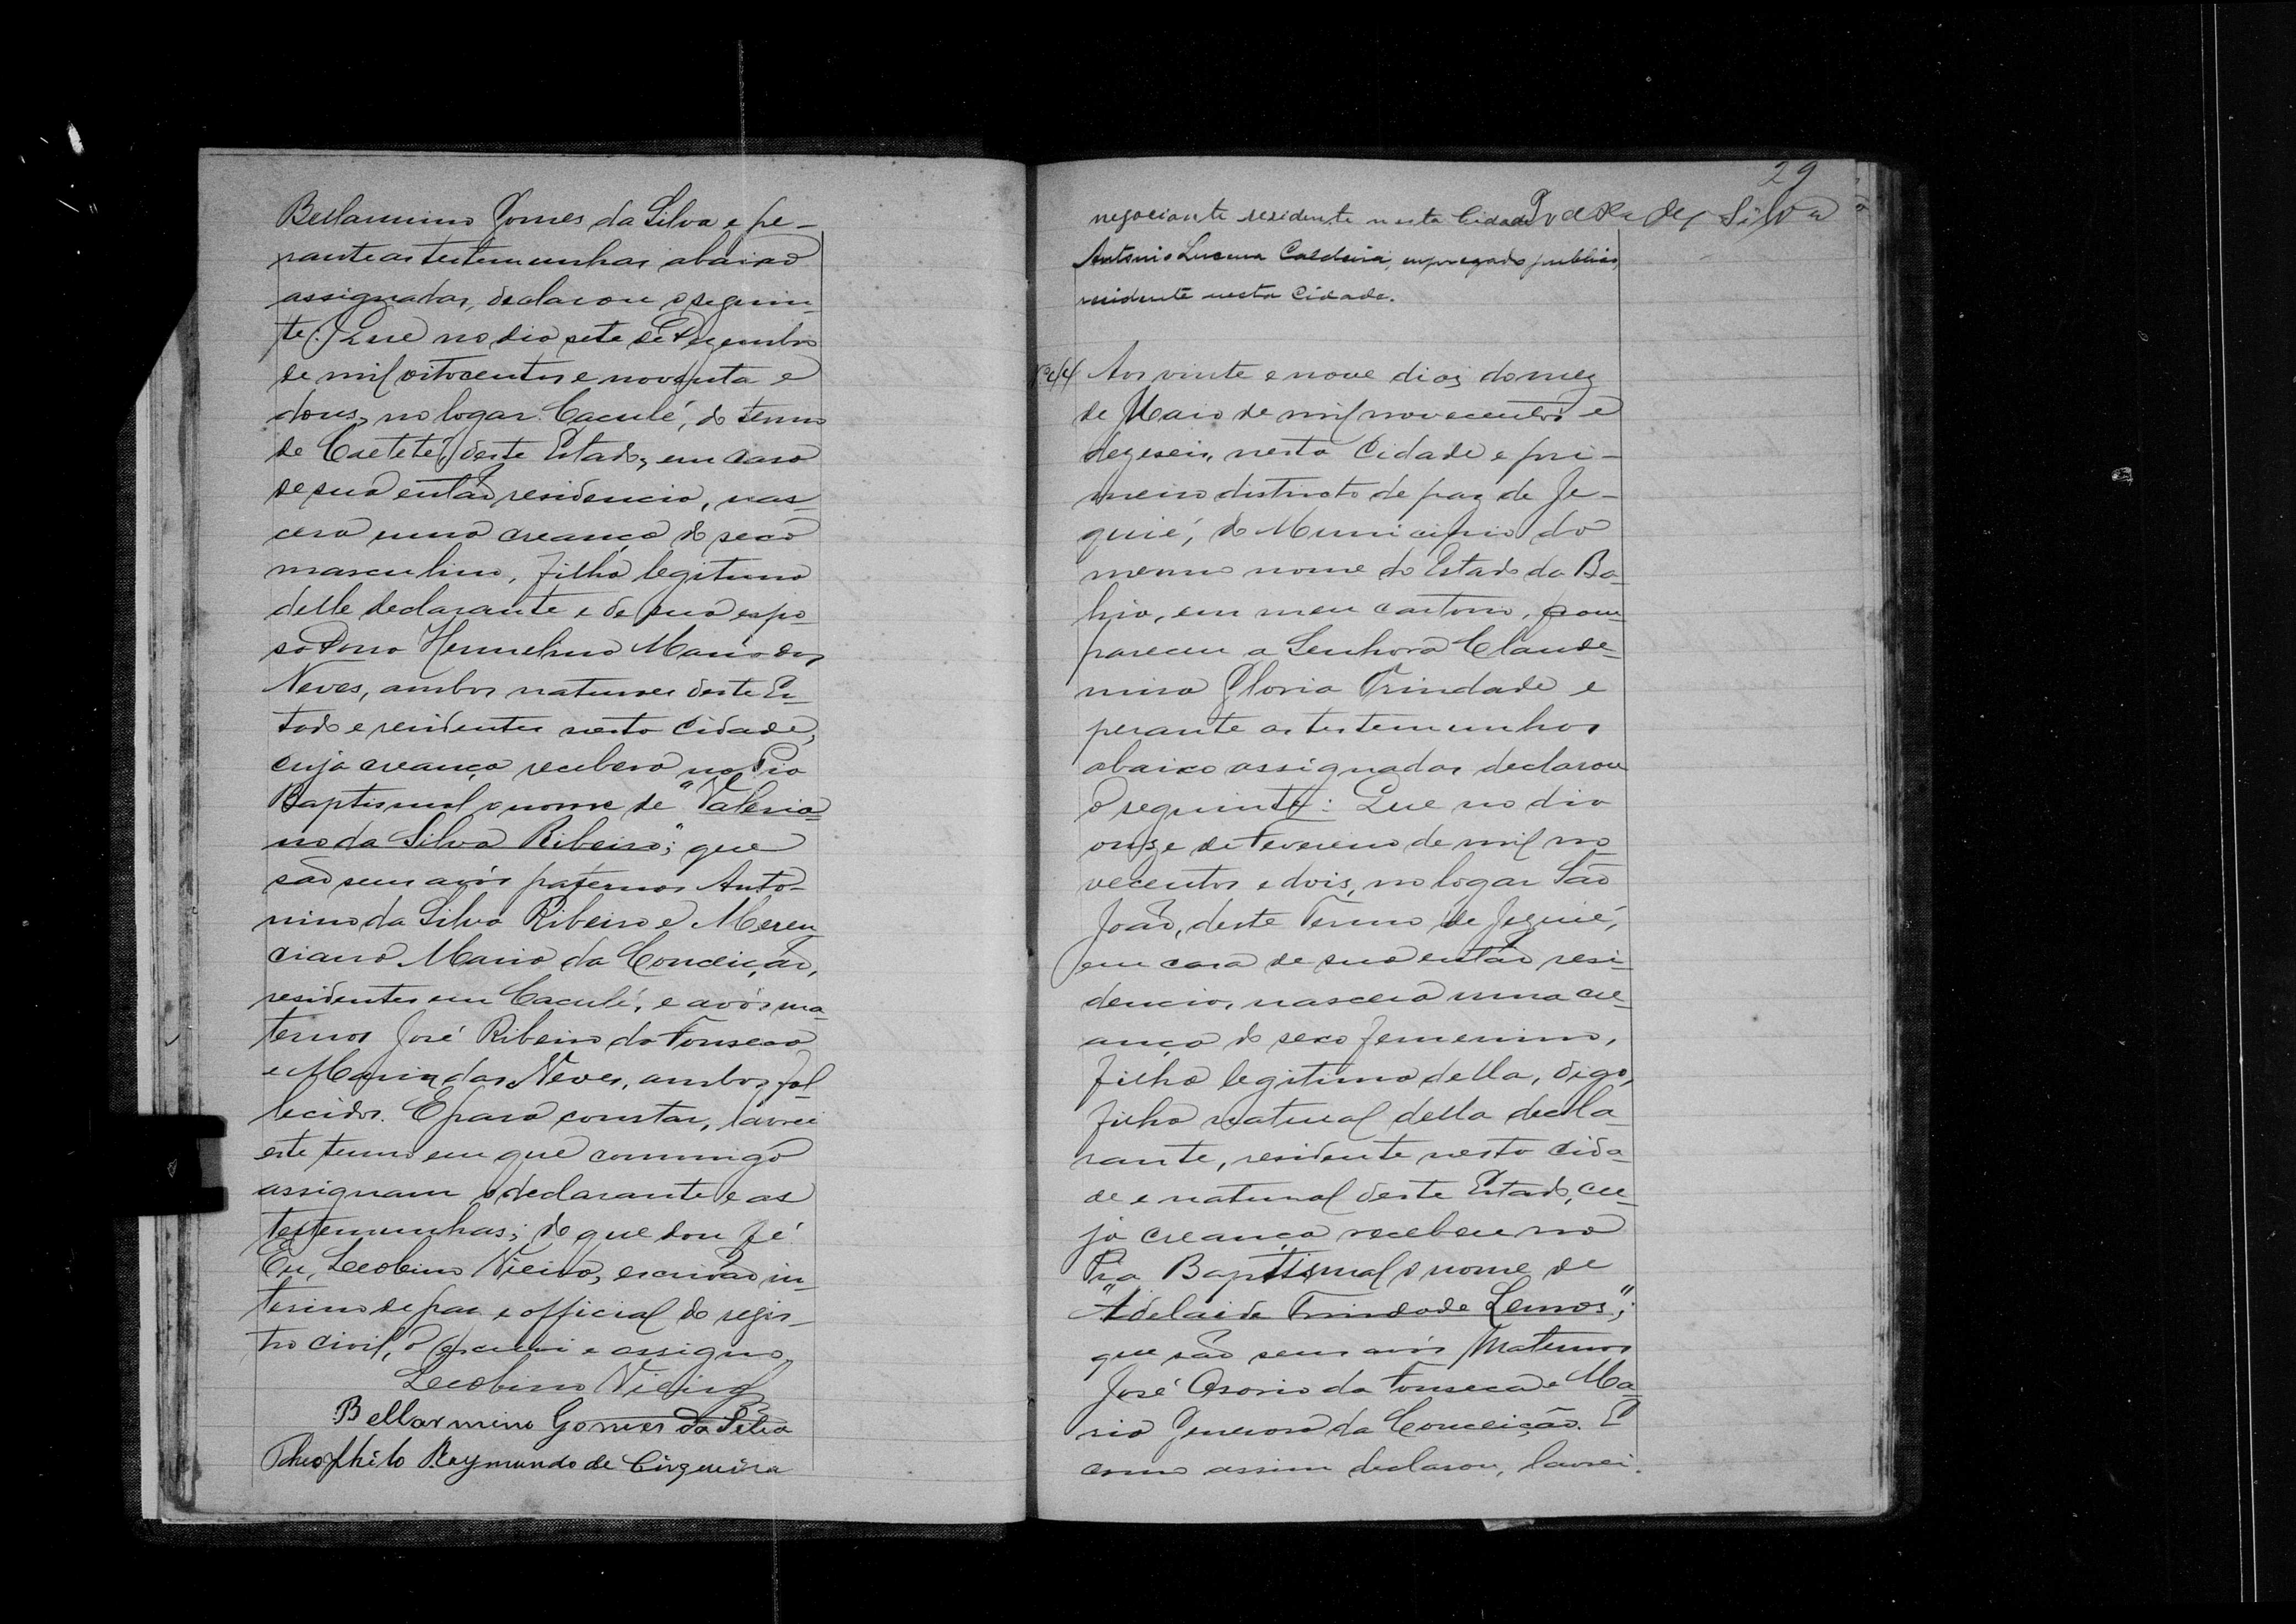 Bellarmino Gomes da Silva e pe-
rante as testemunhas abaixo
assignadas, declarou o seguin-
te: Que no dia sete de Dezembro
de mil oitocentos e noventa e
dous, no logar Caculé, do termo
de Caeteté, deste Estado, em casa
de sua então residencia, nas-
cera uma creança do sexo
masculino, filho legitimo
delle declarante e de sua espo-
sa Dona Hermelina Maria das
Neves, ambos naturaes deste Es-
tado e residentes nesta cidade,
cuja creança recebera na Pia
Baptismal o nome de "Valeria-
no da Silva Ribeiro"; que
são seus avós paternos Anto-
nino da Silva Ribeiro e Meren-
ciana Maria da Conceição,
residentes em Caculé, e avós ma-
ternos José Ribeiro da Fonseca
e Maria das Neves, ambos fal-
lecidos. E para constar, lavrei
este termo em que commigo
assignam o declarante e as
testemunhas; do que dou fé.
Eu, Leobino Vieira, escrivão in-
terino de paz e official do regis-
tro civil, o escrevi e assigno
Leobino Vieira
Bellarmino Gomes da Silva
Theophilo Raymundo de Cirqueira
29
negociante residente nesta Cidade da Silva
Antonio Lucena Caldeira, empregado publico,
residente nesta Cidade.
Nº 44 Aos vinte e nove dias do mez
de Maio de mil novecentos e
dezeseis, nesta Cidade e pri-
meiro districto de paz de Je-
quié, do Municipio do
mesmo nome do Estado da Ba-
hia, em meu cartorio, com-
pareceu a Senhora Claude-
mira Gloria Trindade e
perante as testemunhas
abaixo assignadas declarou
o seguinte: Que no dia
onze de Fevereiro de mil no-
vecentos e dois, no logar São
João, deste Termo de Jequié,
em casa de sua então resi-
dencia, nascera uma cre-
ança do sexo femenino,
filha legitima della, digo,
filha natural della decla-
rante, residente nesta cida-
de e natural deste Estado, cu-
ja creança recebeu na
Pia Baptismal o nome de
"Adelaide Trindade Lemos";
que são seus avós Maternos
José Osorio da Fonseca e Ma-
ria Generosa da Conceição. E
como assim declarou, lavrei